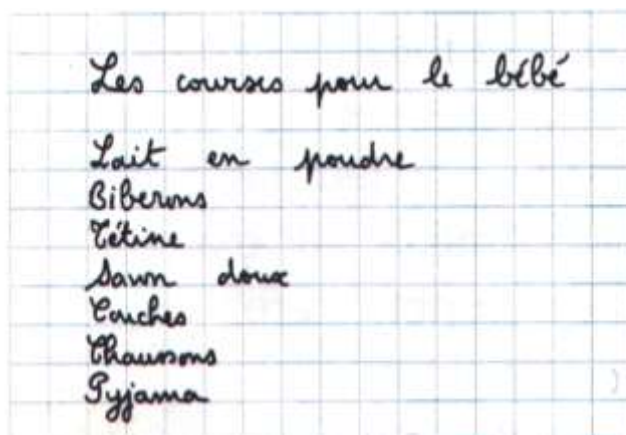 Les courses pour le bébé
Lait en poudre
Biberons
Tétine
Savon doux
Couches
Chaussons
Pyjama